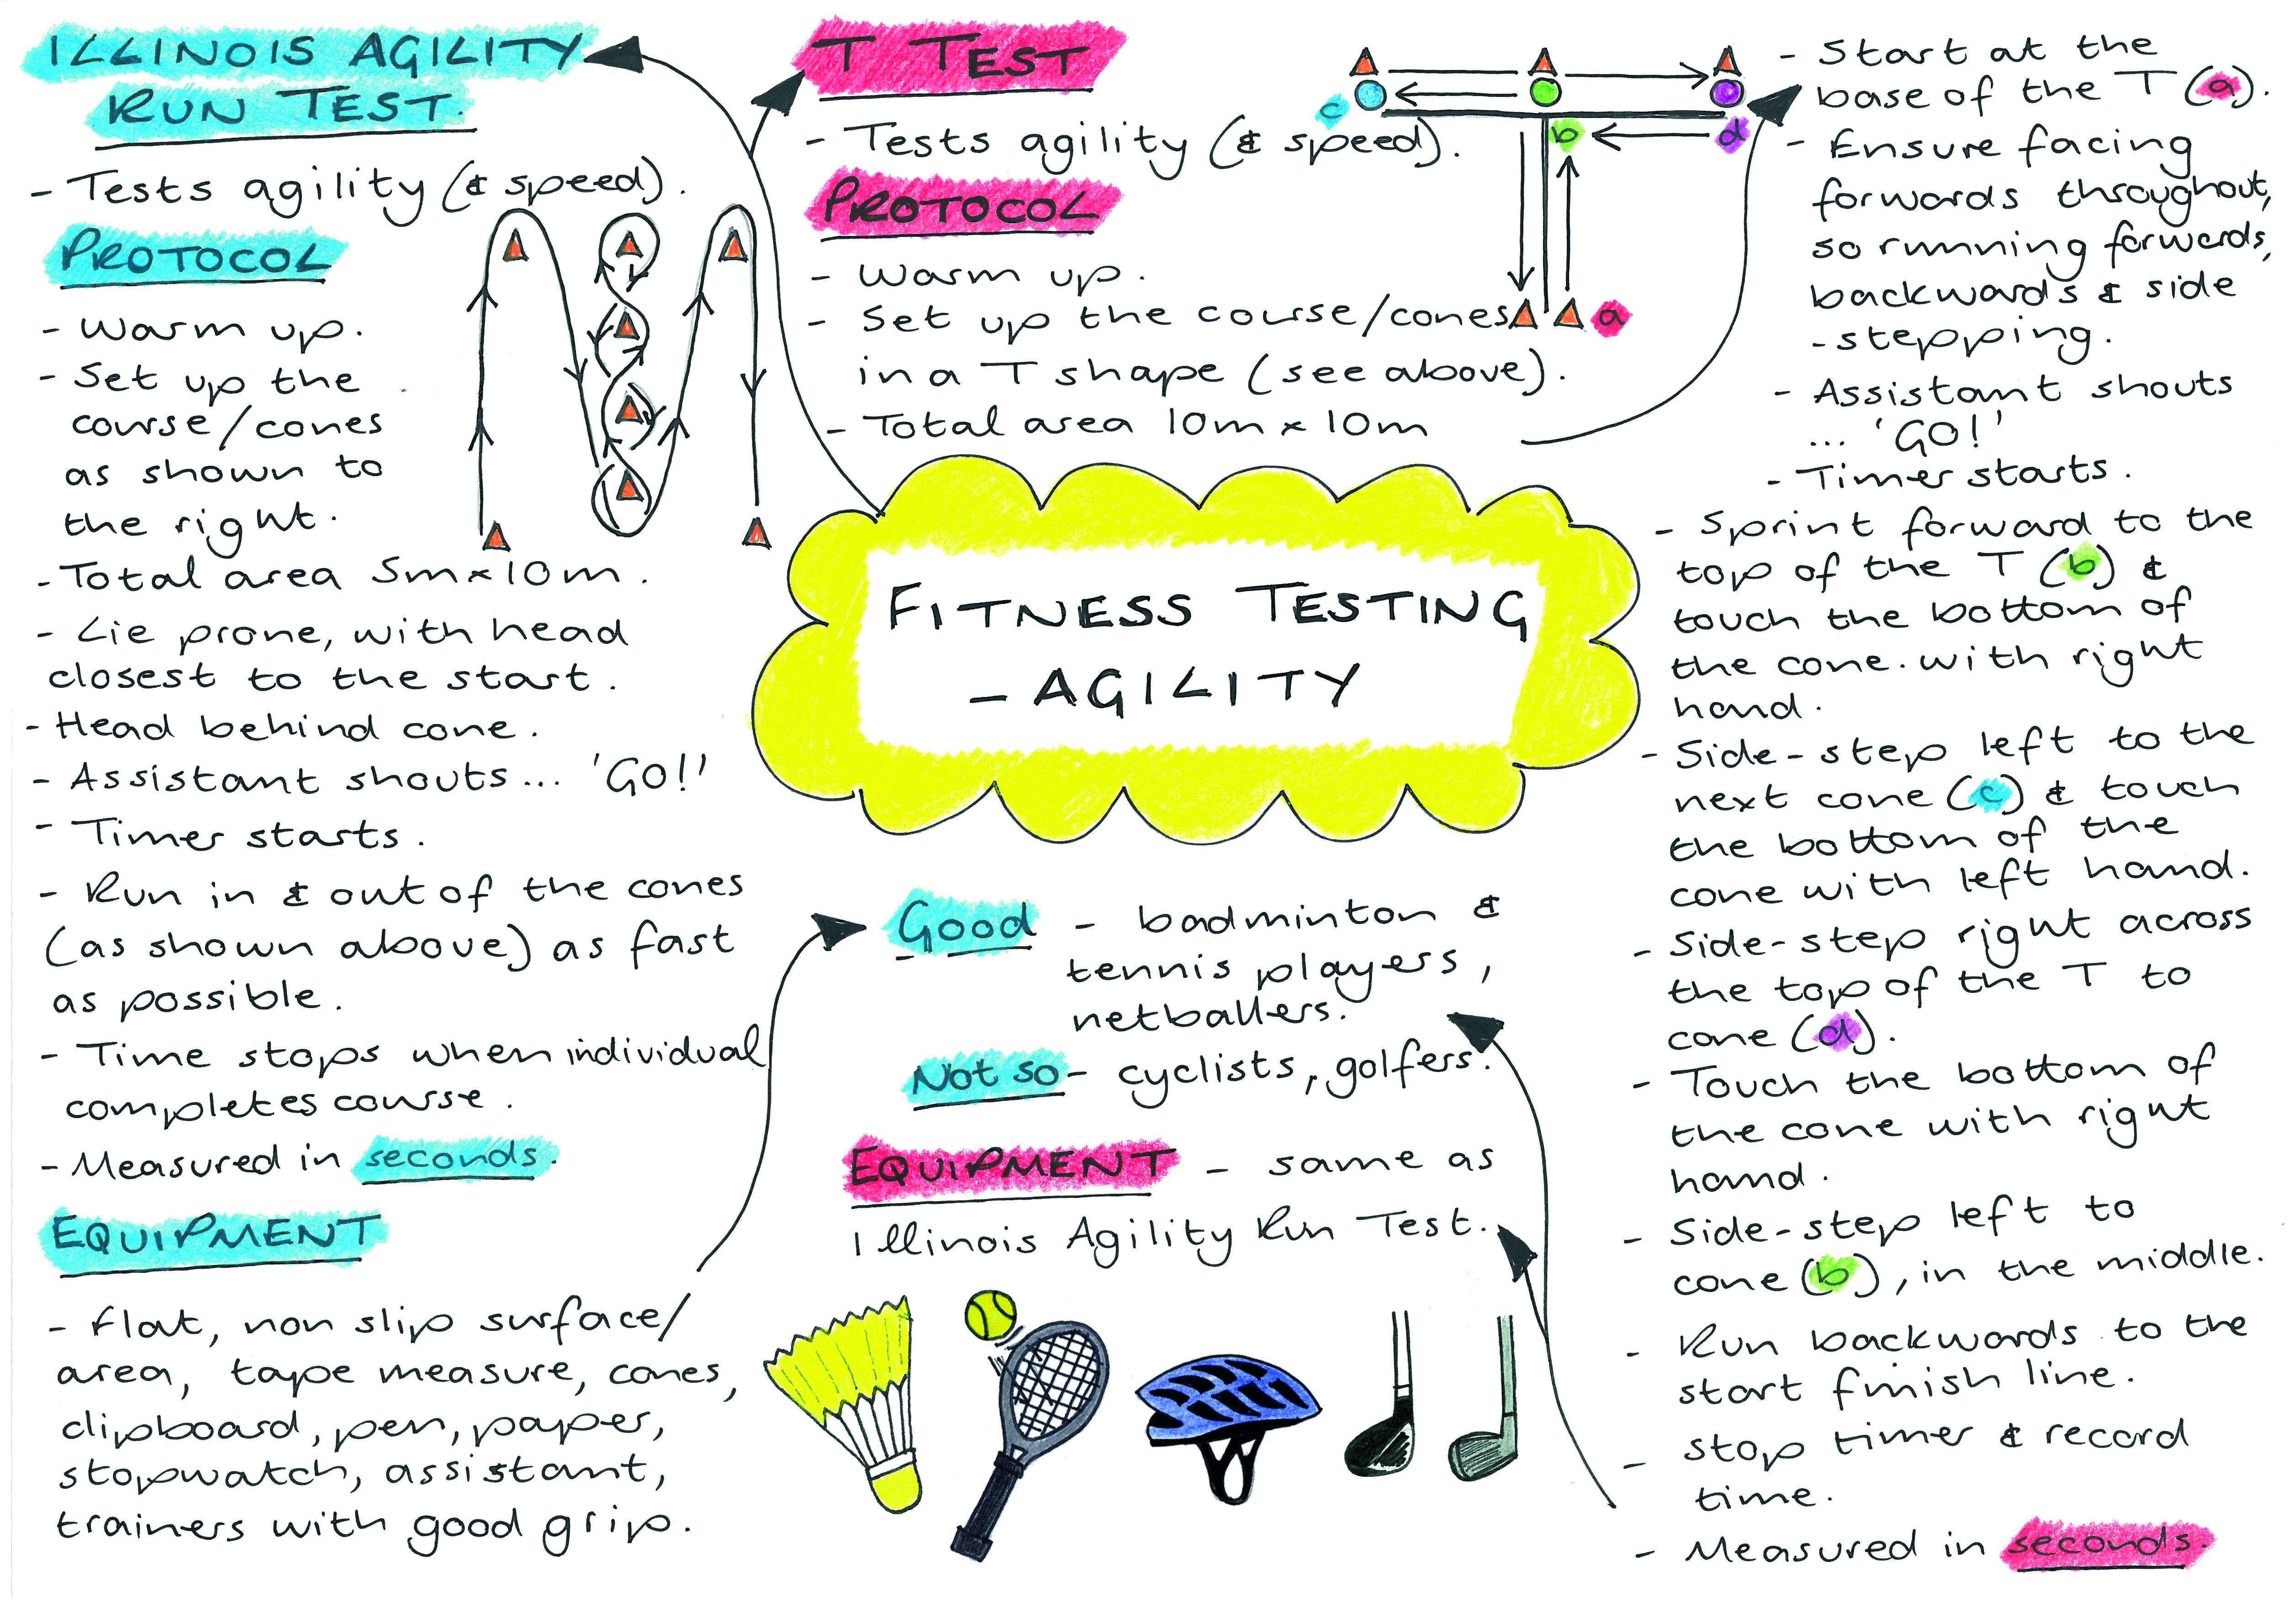 ILLINOIS AGILITY
RUN TEST.
- Tests agility (& speed).
PROTOCOL
- Warm up.
- Set up the
course/cones
as shown to
the right.
- Total area 5m x 10m.
- Lie prone, with head
closest to the start.
- Head behind cone.
- Assistant shouts... 'GO!'
- Timer starts.
- Run in & out of the cones
(as shown above) as fast
as possible.
- Time stops when individual
completes course.
- Measured in seconds.
EQUIPMENT
- Flat, non slip surface/
area, tape measure, cones,
clipboard, pen, paper,
stopwatch, assistant,
trainers with good grip.
T TEST
- Tests agility (& speed).
PROTOCOL
- Warm up.
- Set up the course/cones
in a T shape (see above).
- Total area 10m x 10m
c
b
d
a
FITNESS TESTING
- AGILITY
Good - badminton &
tennis players,
netballers.
Not so - cyclists, golfers.
EQUIPMENT - same as
Illinois Agility Run Test.
- Start at the
base of the T (a).
- Ensure facing
forwards throughout,
so running forwards,
backwards & side
-stepping.
- Assistant shouts
... 'GO!'
- Timer starts.
- Sprint forward to the
top of the T (b) &
touch the bottom of
the cone. with right
hand.
- Side-step left to the
next cone (c) & touch
the bottom of the
cone with left hand.
- Side-step right across
the top of the T to
cone (d).
- Touch the bottom of
the cone with right
hand.
- Side-step left to
cone (b), in the middle.
- Run backwards to the
start finish line.
- Stop timer & record
time.
- Measured in seconds.